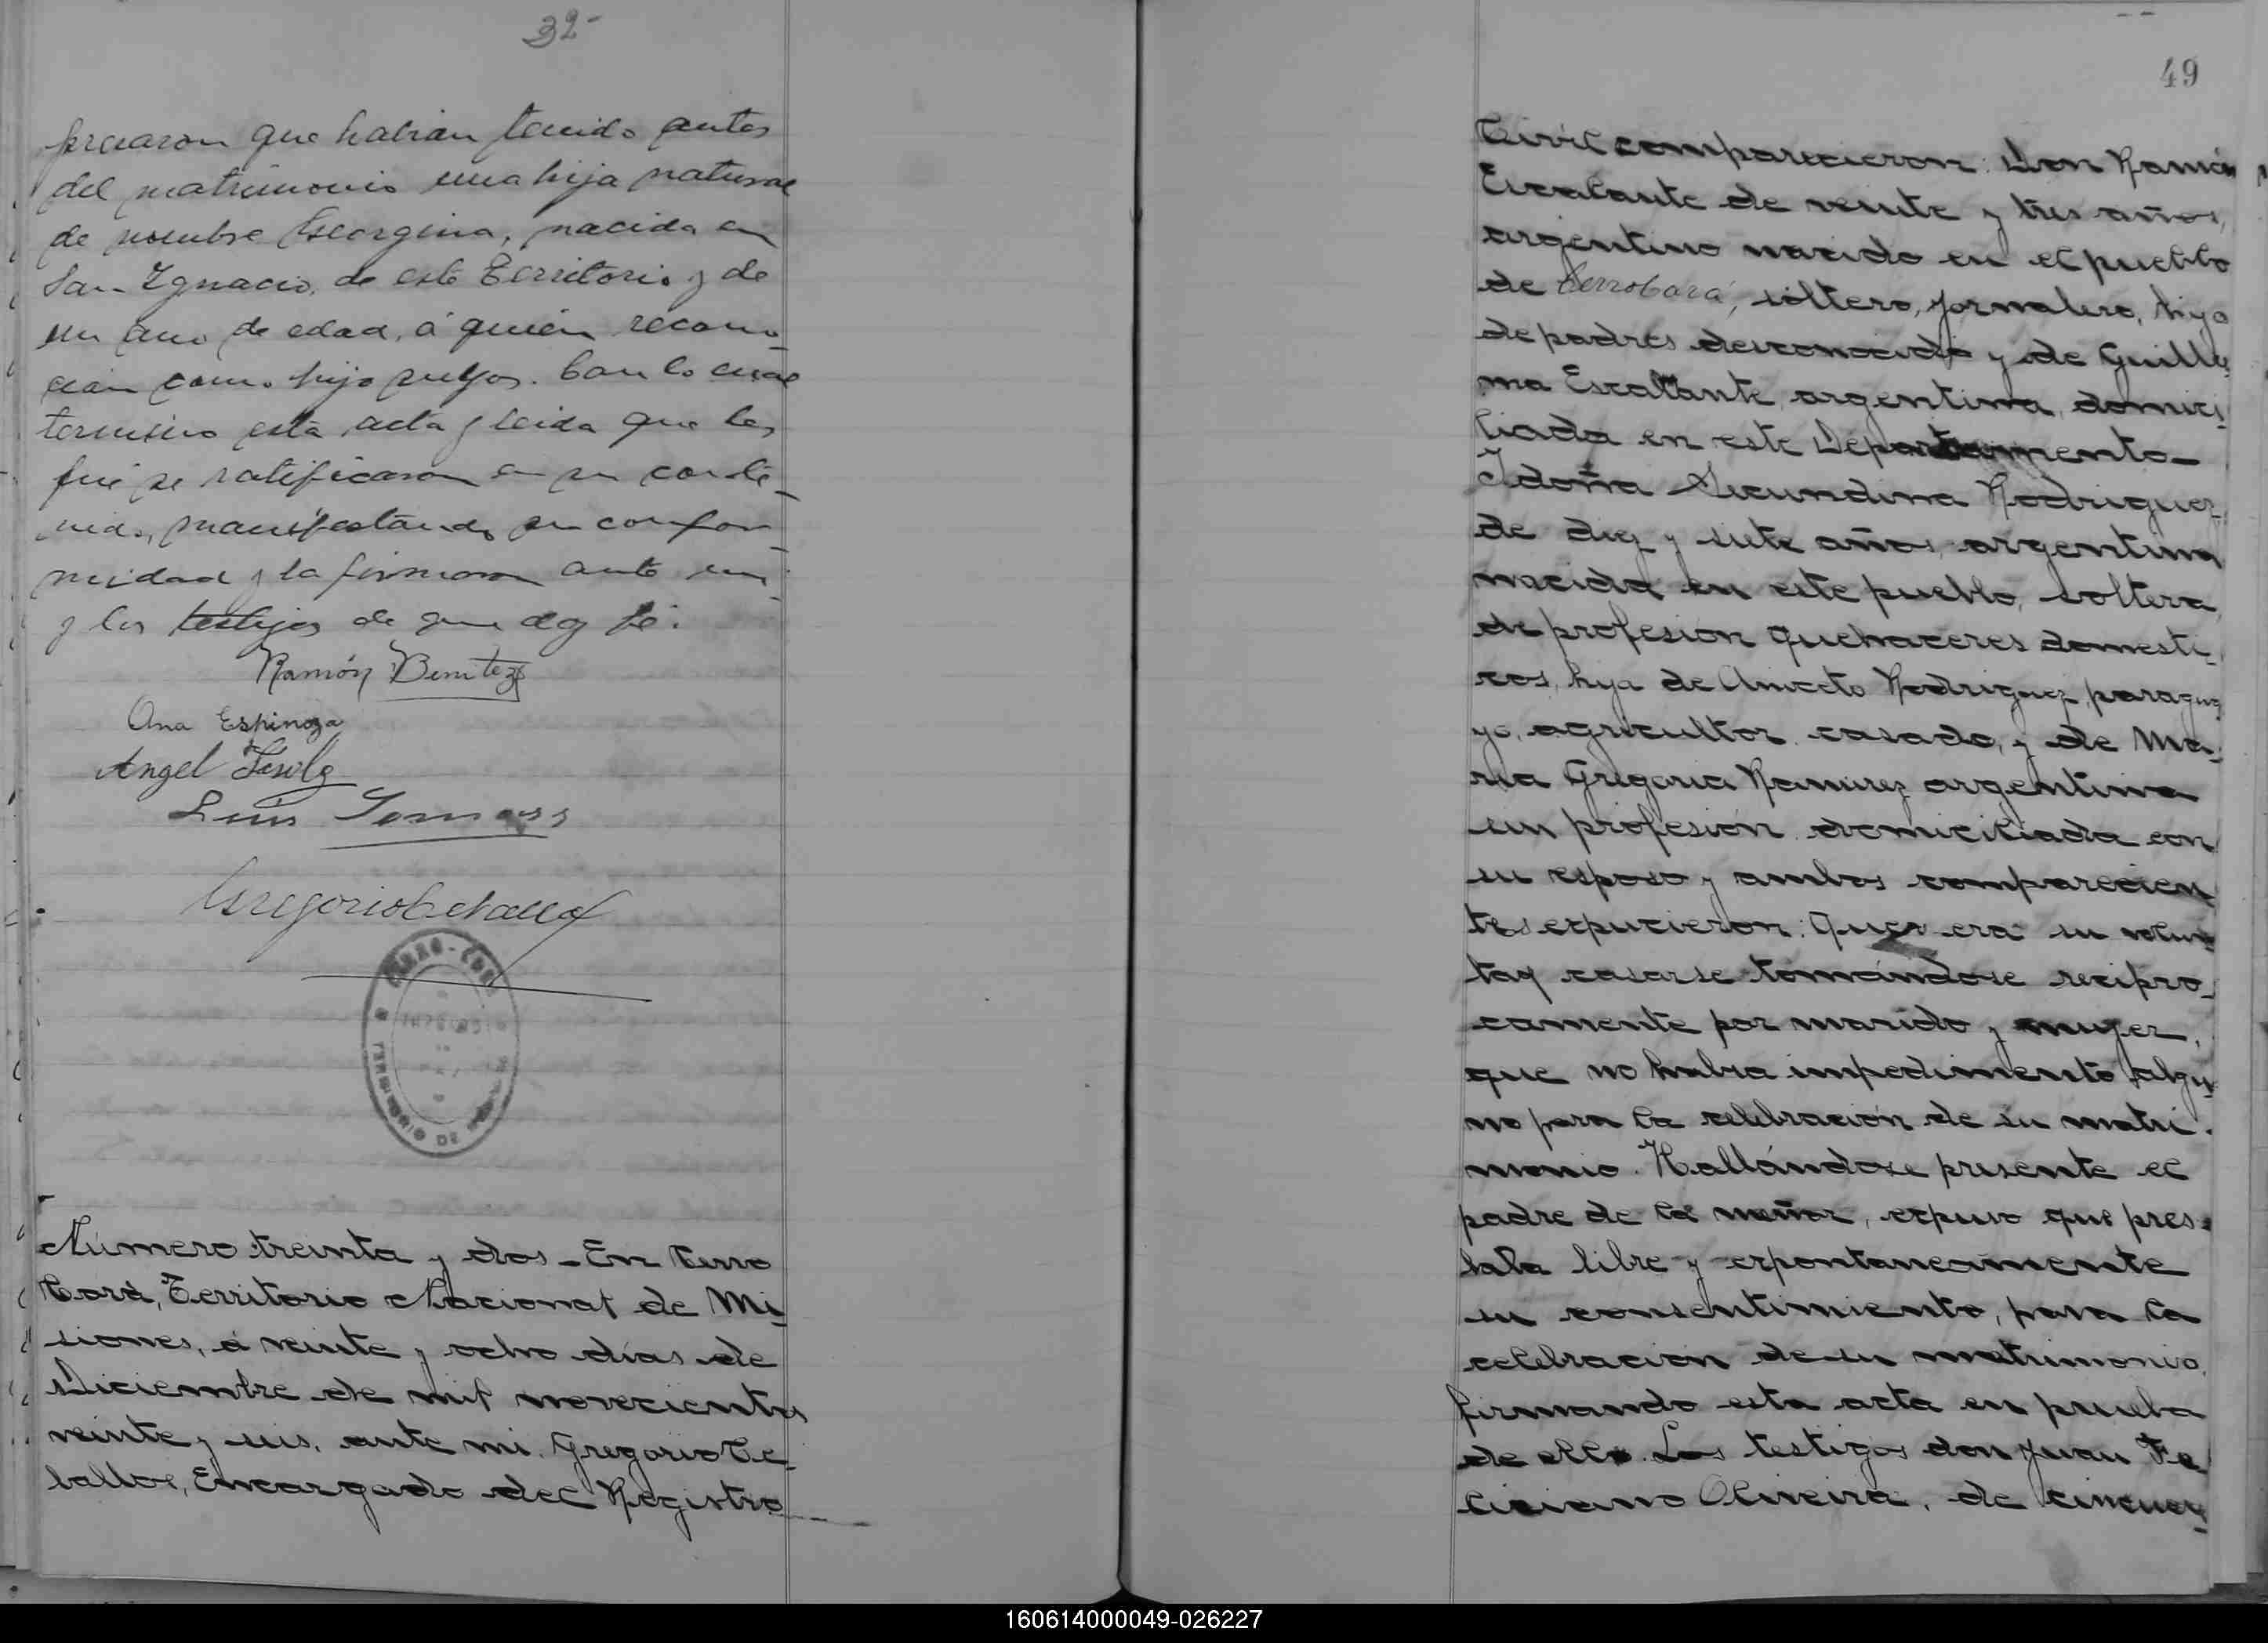 32-
presaron que habian tenido antes
del matrimonio una hija natural
de nombre Georgina, nacida en
San Ignacio, de este Territorio y de
un año de edad, á quien recono-
cian como hijo suyos. Con lo cual
termino esta acta y leida que les
fué se ratificaron en su conte-
nido, manifestando su confor-
midad y la firmaron ante mi
y los testigos de que doy fé.
Ramón Benitez
Ana Espinoza
Angel
Luis
Gregorio Ceballos
Número treinta y dos - En Cerro
Corá, Territorio Nacional de Mi-
siones, á veinte y ocho dias de
Diciembre de mil novecientos
veinte y seis, ante mi, Gregorio Ce-
ballos, Encargado del Registro
49
Civil comparecieron: Don Ramón
Escalante de veinte y tres años,
argentino nacido en el pueblo
de Cerro Corá, soltero, jornalero, hijo
de padres desconocido y de Guiller-
ma Escalante, argentina, domici-
liada en este Departamento-
Y doña Secundina Rodriguez,
de diez y siete años, argentina
nacida en este pueblo, soltera,
de profesion quehaceres domesti-
cos, hija de Aniceto Rodriguez, paragua-
yo, agricultor casado, y de Ma-
ria Gregoria Ramirez argentina
sin profesión domiciliada con
su esposo y ambos comparecien
tes expucieron: Que era su volun-
tad casarse tomándose recipro-
camente por marido y mujer,
que no habia impedimento algu-
no para la celebración de su matri-
monio. Hallándose presente el
padre de la menor, expuso que pres-
taba libre y espontaneamente
su consentimiento, para la
celebración de su matrimonio,
firmando esta acta en prueba
de ello. Los testigos don Juan Fe
liciano Olineira, de cincuen-
160614000049-026227